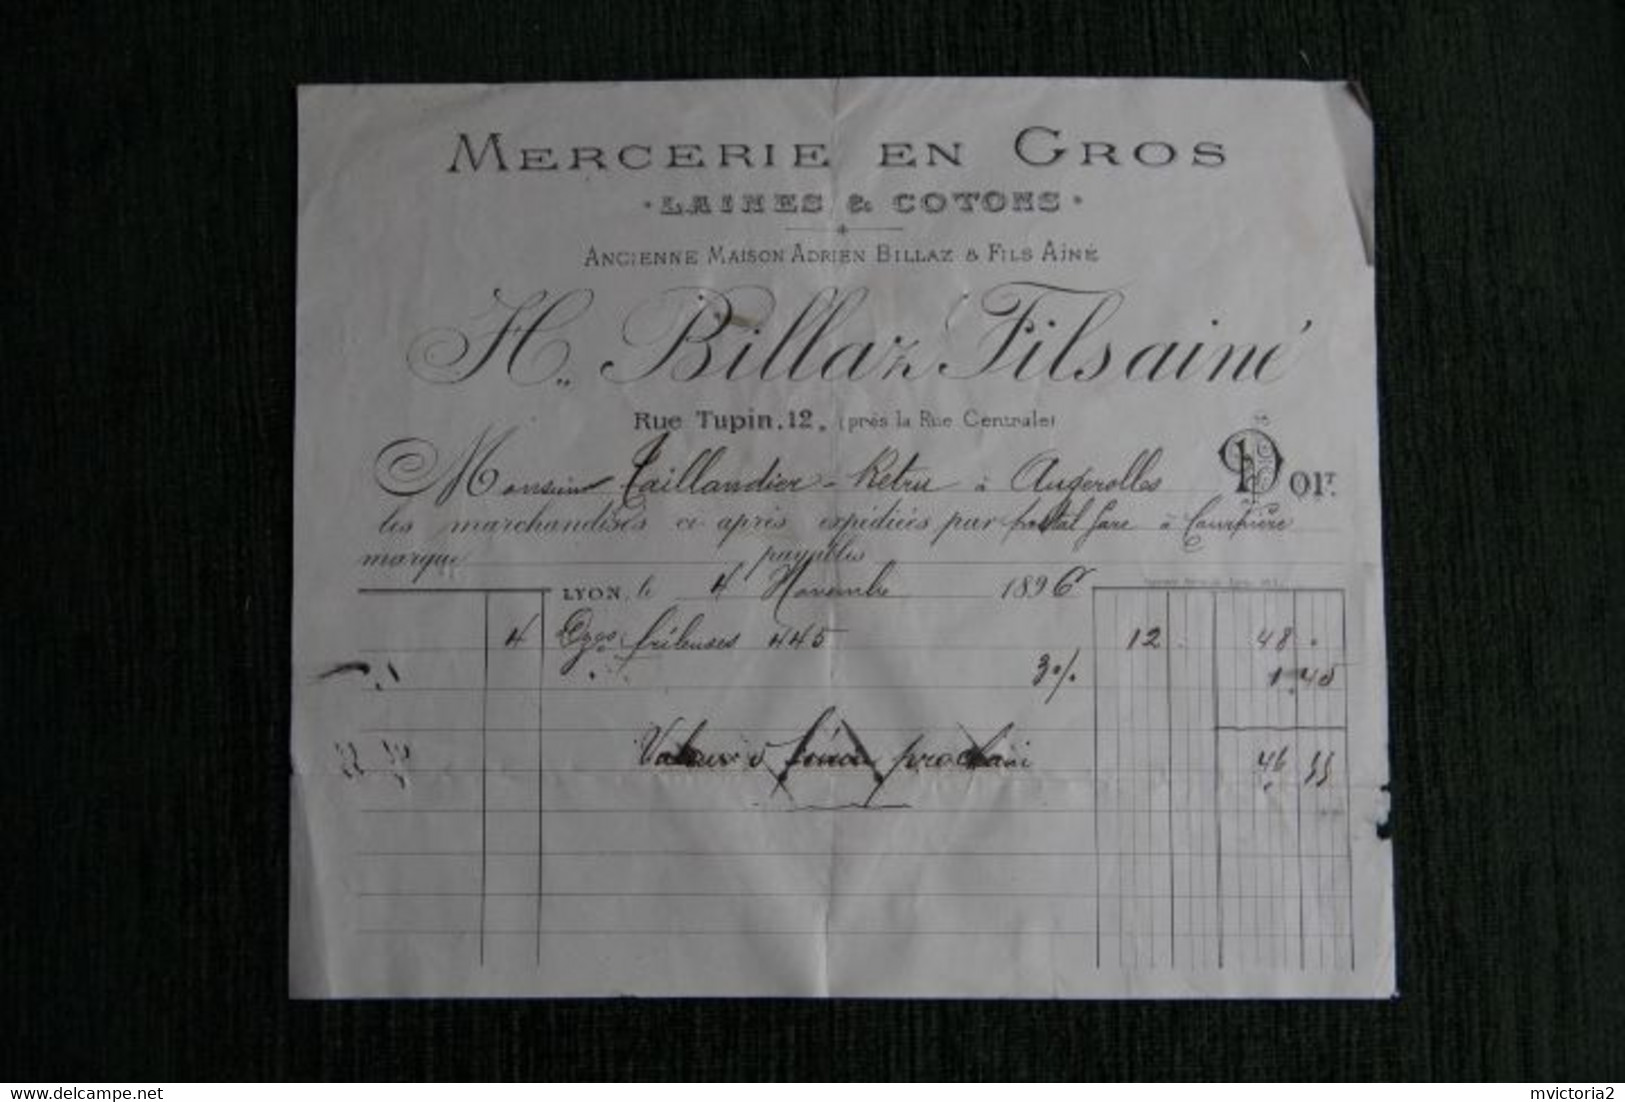 MERCERIE EN GROS
LAINES & COTONS
ANCIENNE MAISON ADRIEN BILLAZ & FILS AINÉ
H. Billaz Fils ainé
Rue Tupin, 12, (près la Rue Centrale)
Monsieur Taillandier - Retru à Augerolles DOIT
les marchandises ci après expédiées par postal gare à Courpière
marque payables
LYON, le 4 Novembre 1896
4 Dzes frileuses 445 12 48
3% 1 45
Valeur fin prochain 46 55
delcampe.net
mvictoria2